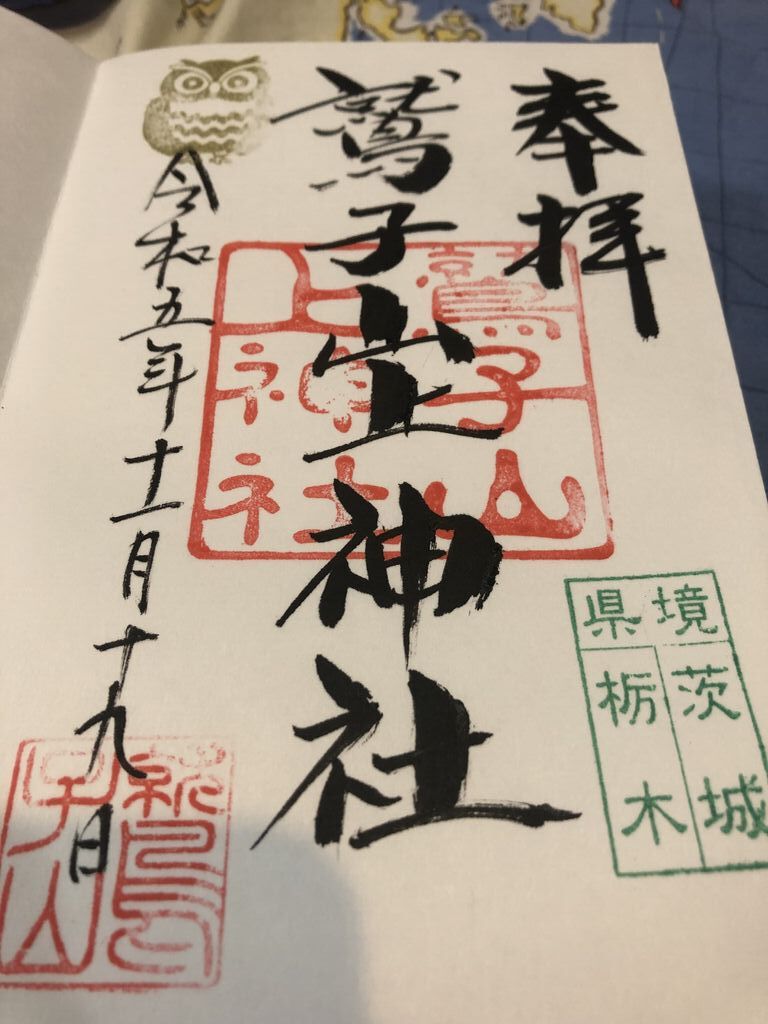 奉拝
鷲子山上神社
鷲子山
上神社
県境
茨城
栃木
令和五年十一月十九日
鷲
子山